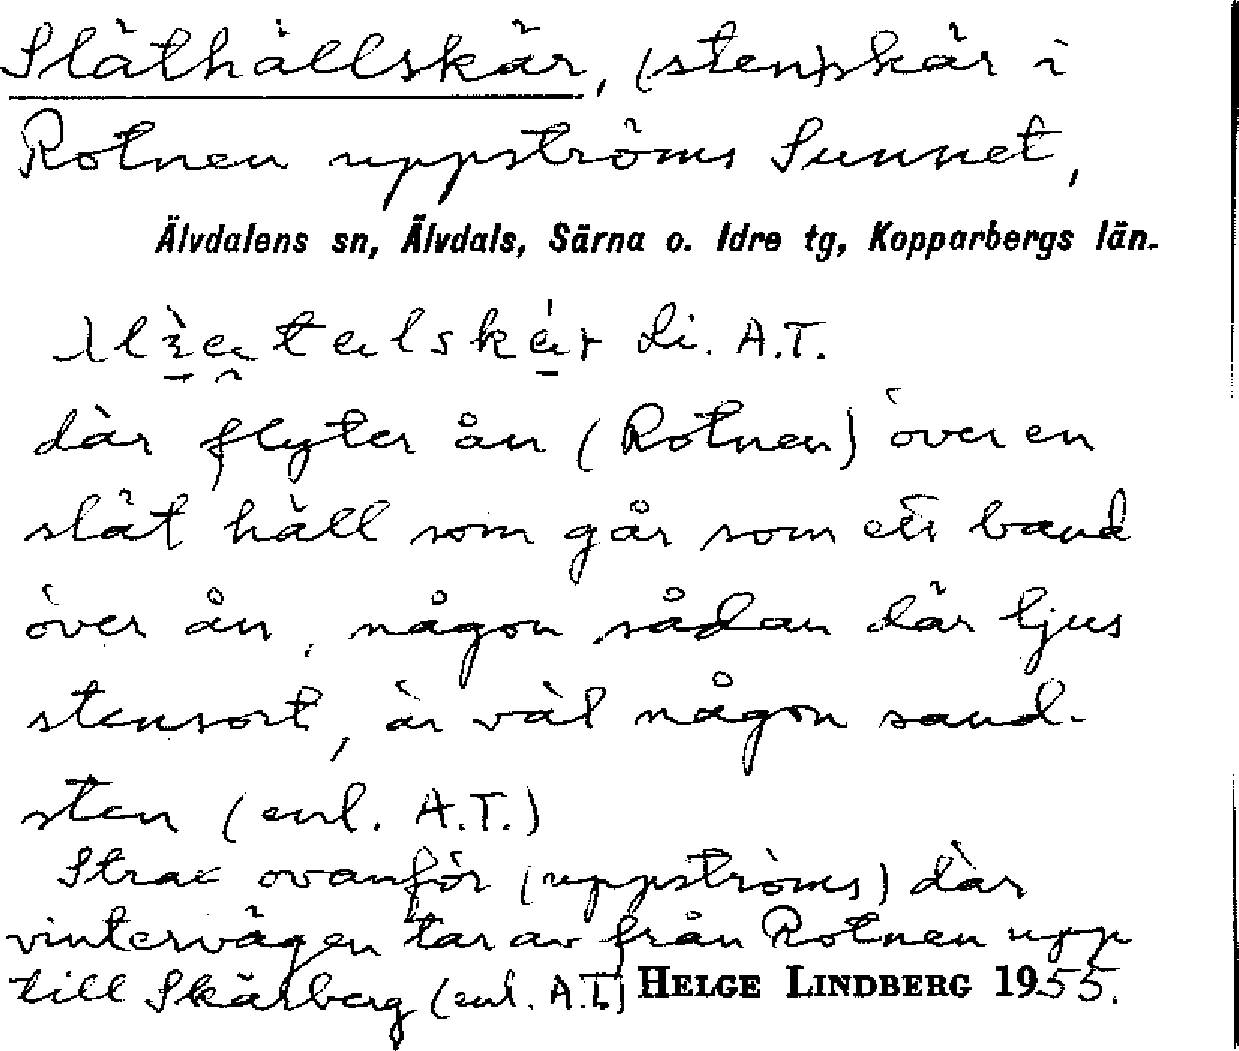 Släthällskär, (sten)skär i
Rotnen uppströms Sunnet,
Älvdalens sn, Älvdals, Särna o. Idre tg, Kopparbergs län.
Li. A.T.
där flyter ån (Rotnen) över en
slät häll som går som ett band
över ån, någon sådan där ljus
stensort, är väl någon sand-
sten (enl. A.T.)
Strax ovanför (uppströms) där
vintervägen tar av från Rotnen upp
till Skärberg (enl. A.T.) HELGE LINDBERG 1955.